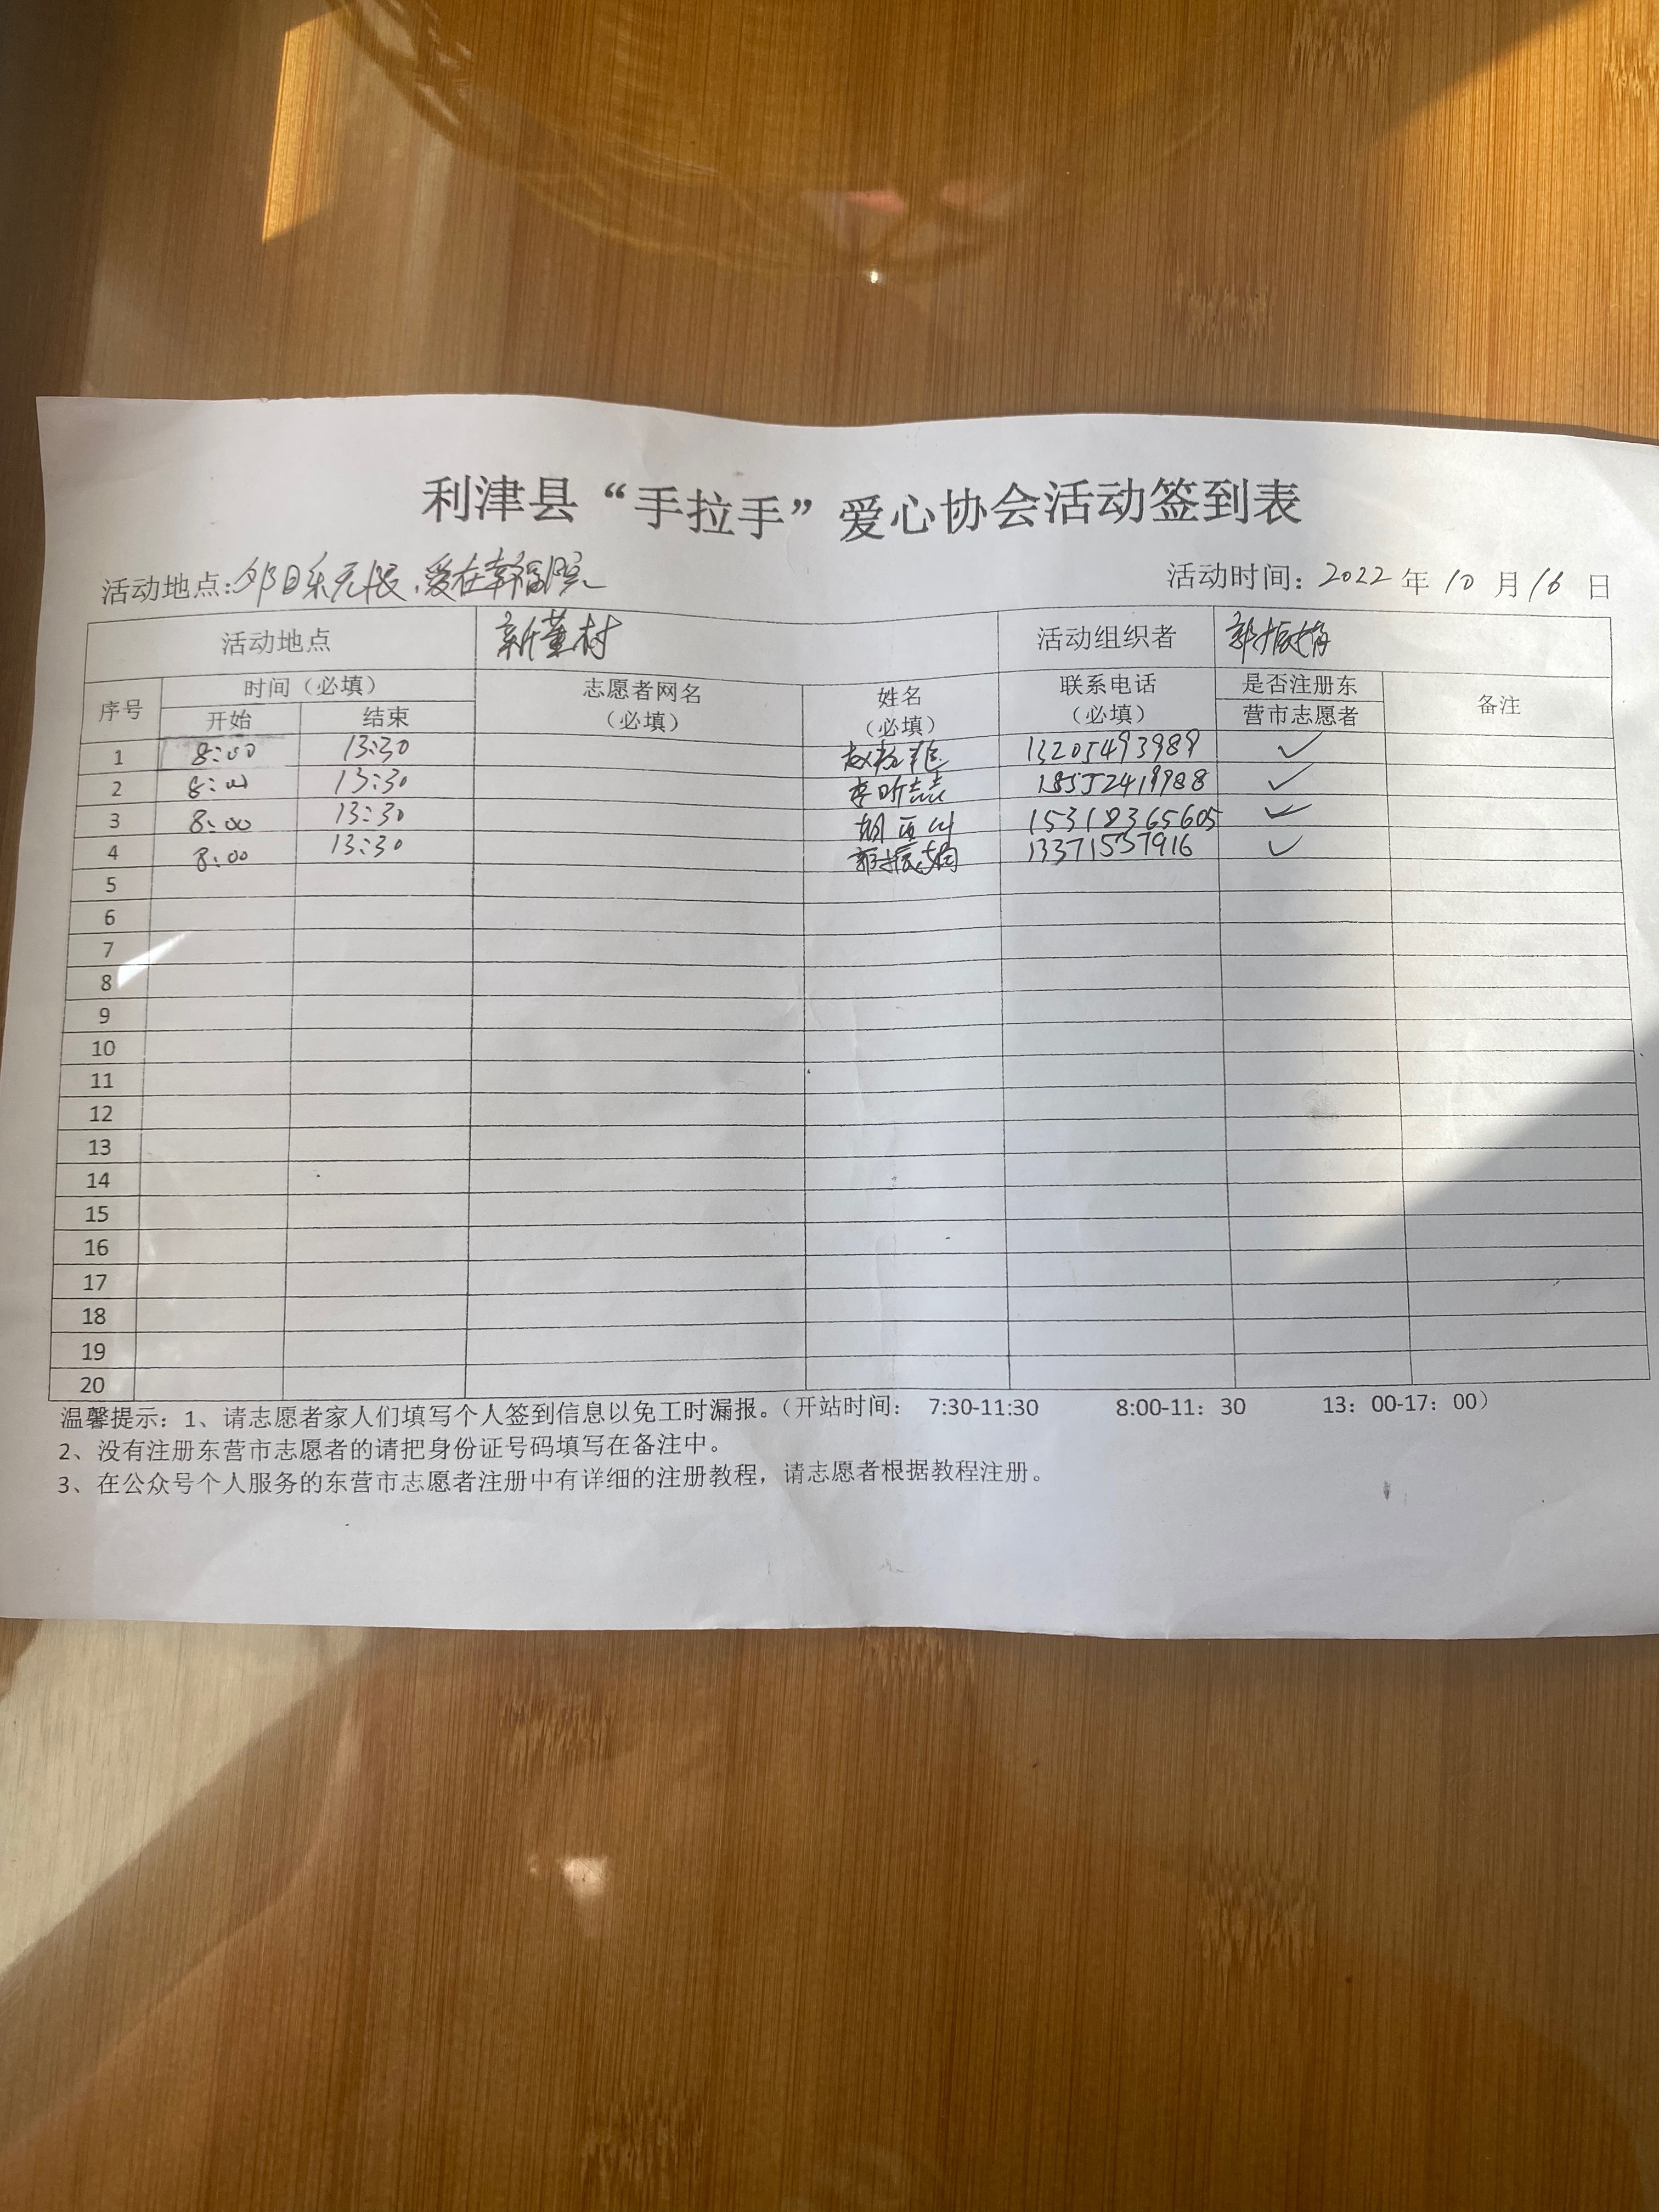 利津县“手拉手”爱心协会活动签到表
活动地点:夕阳乐无限,爱在幸福院 活动时间：2022年10月16日
活动地点 新董村 活动组织者 郭振娟
序号 时间（必填） 志愿者网名（必填） 姓名（必填） 联系电话（必填） 是否注册东营市志愿者 备注
开始 结束
1 8:00 13:30 13205493989 ✓
2 8:00 13:30 李昕喆 18552419988 ✓
3 8:00 13:30 15318365605 ✓
4 8:00 13:30 郭振娟 13371557916 ✓
5
6
7
8
9
10
11
12
13
14
15
16
17
18
19
20
温馨提示：1、请志愿者家人们填写个人签到信息以免工时漏报。（开站时间： 7:30-11:30 8:00-11：30 13：00-17：00）
2、没有注册东营市志愿者的请把身份证号码填写在备注中。
3、在公众号个人服务的东营市志愿者注册中有详细的注册教程，请志愿者根据教程注册。